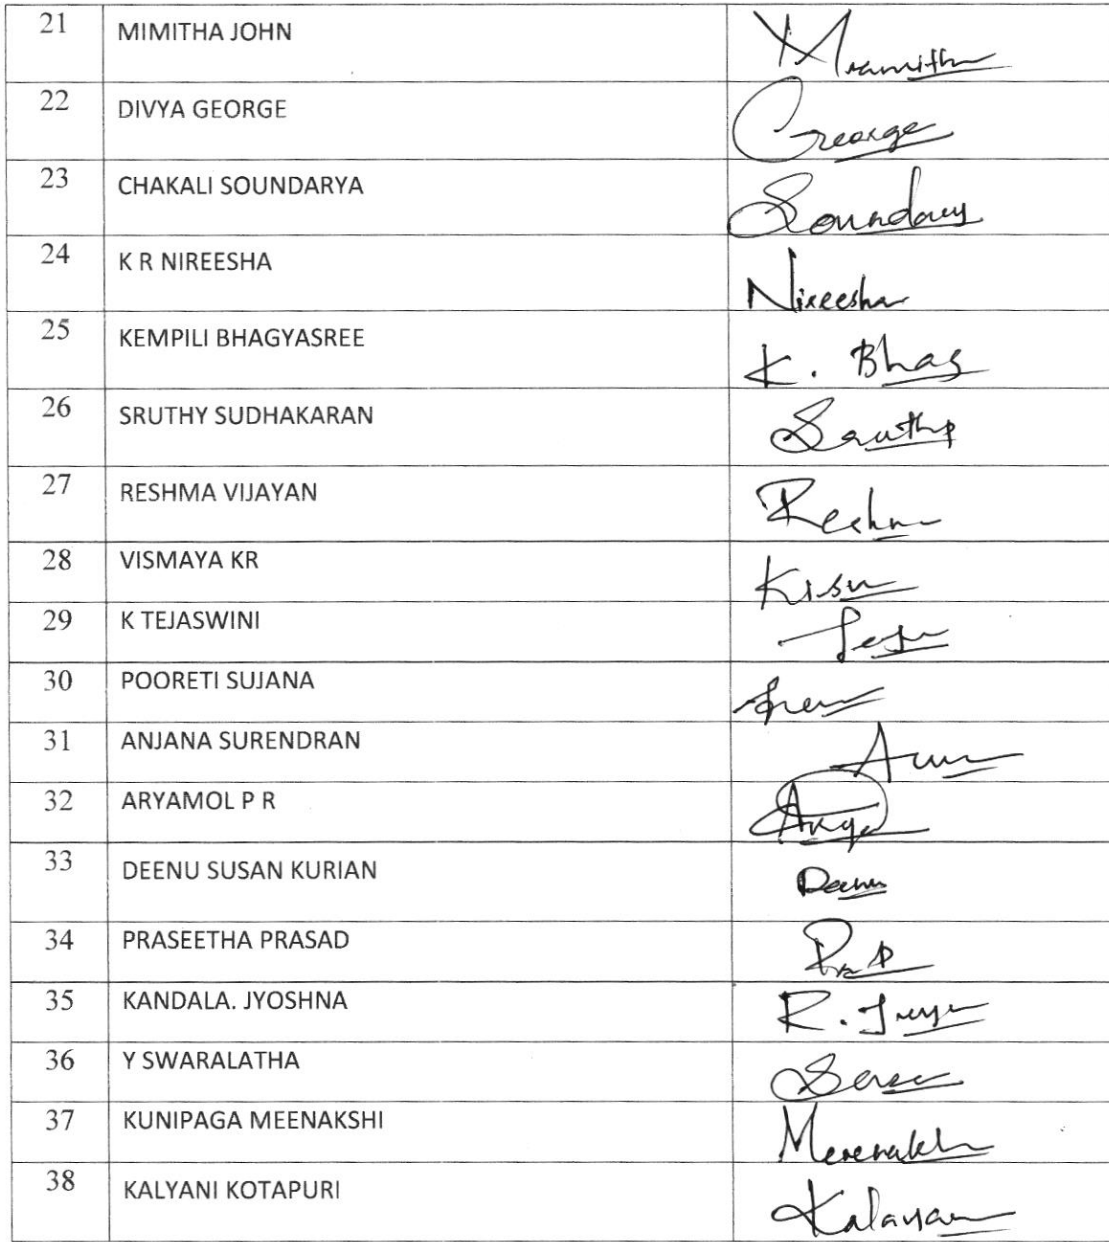 21 MIMITHA JOHN
22 DIVYA GEORGE George
23 CHAKALI SOUNDARYA
24 K R NIREESHA Nireesha
25 KEMPILI BHAGYASREE K. Bhag
26 SRUTHY SUDHAKARAN
27 RESHMA VIJAYAN
28 VISMAYA KR
29 K TEJASWINI
30 POORETI SUJANA
31 ANJANA SURENDRAN
32 ARYAMOL P R Arya
33 DEENU SUSAN KURIAN Deenu
34 PRASEETHA PRASAD
35 KANDALA. JYOSHNA
36 Y SWARALATHA
37 KUNIPAGA MEENAKSHI
38 KALYANI KOTAPURI